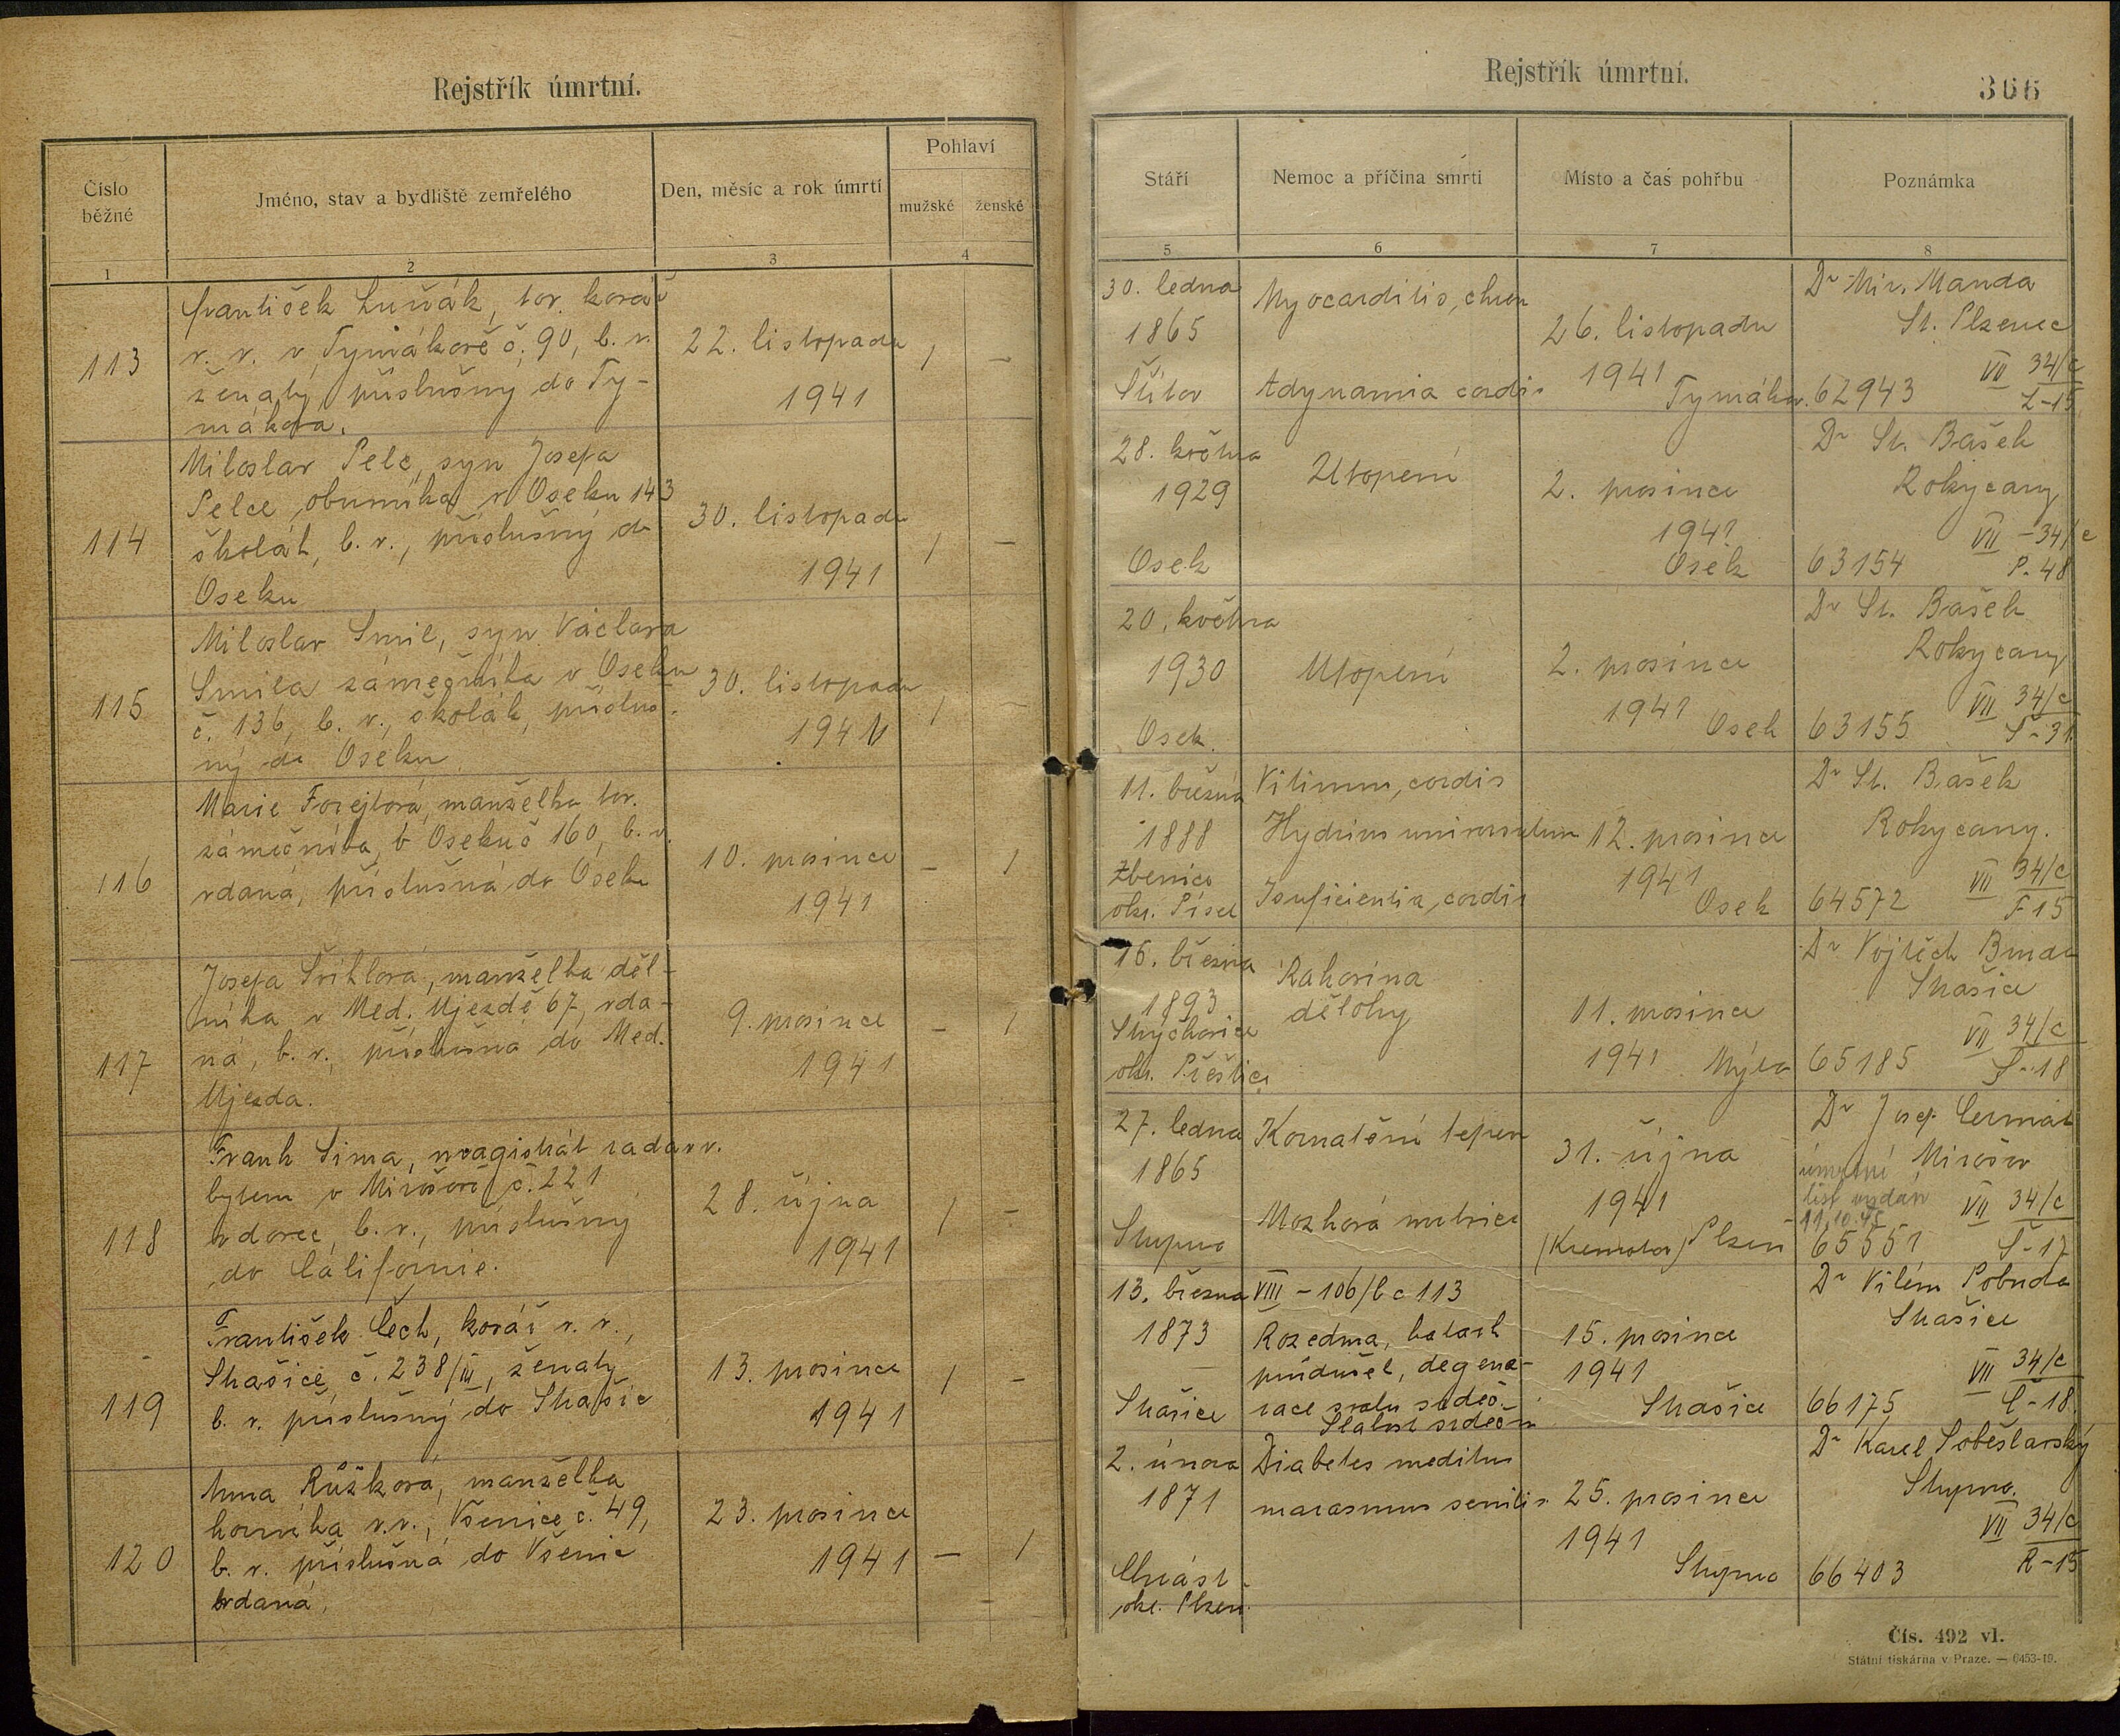 Rejstřík úmrtní.
Číslo běžné
Jméno, stav a bydliště zemřelého
Den, měsíc a rok úmrtí
Pohlaví
mužské
ženské
1
2
3
4
113
František Luňák, tov. kovář
v. v. v Tymákově č. 90, b. v.
ženatý, příslušný do Ty-
mákova.
22. listopadu
1941
1
—
114
Miloslav Pelc, syn Josefa
Pelce obuvníka v Oseku 143
školák, b. v., příslušný do
Oseku
30. listopadu
1941
1
—
115
Miloslav Smil, syn Václava
Smila zámečníka v Oseku
č. 136, b. v., školák, přísluš-
ný do Oseku
30. listopadu
1941
1
—
116
Marie Forejtová, manželka tov.
zámečníka, v Oseku č 160, b. v.
vdaná, příslušná do Oseku
10. prosince
1941
—
1
117
Josefa Šrihlová, manželka děl-
níka v Med. Ujezdě 67, vda-
ná, b. v., příslušná do Med.
Ujezda.
9. prosince
1941
—
1
118
Frank Šima, magistrát rada v v.
bytem v Mirošově č. 221
vdovec, b. v., příslušný
do Californie.
28. října
1941
1
—
119
František Čech, kovář v. v.,
Strašice, č. 238/III, ženatý
b. v. příslušný do Strašic
13. prosince
1941
1
—
120
Anna Růžková, manželka
horníka v.v., Všenice č. 49,
b. v. příslušná do Všenic
vdaná,
23. prosince
1941
—
1
Rejstřík úmrtní.
366
Stáří
Nemoc a příčina smrti
Místo a čas pohřbu
Poznámka
5
6
7
8
30. ledna
1865
Šťítov
Myocarditis, chron
Adynamia cordis
26. listopadu
1941
Tymákov.
Dr Mir. Manda
St. Plzenec
VII 34/c
62943
L-15
28. května
1929
Osek
Utopení
2. prosince
1941
Osek
Dr St. Bašek
Rokycany
VII - 34/c
63154
P. 48
20. května
1930
Osek.
Utopení
2. prosince
1941
Osek
Dr St. Bašek
Rokycany
VII 34/c
63155
S-31
11. března
1888
Zbenice
okr. Písek
Vitium, cordis
Hydrops universalum
Isuficientia, cordis
12. prosince
1941
Osek
Dr St. Bašek
Rokycany.
VII 34/c
64572
F 15
16. března
1893
Skýchovice
okr. Přeštice
Rakovina
dělohy
11. prosince
1941
Mýto
Dr Vojtěch Brnda
Strašice
VII 34/c
65185
Š-18
27. ledna
1865
Stupno
Kornatění tepen
Mozková mrtvice
31. října
1941
(Kremator) Plzeň
Dr Josef Čermák
Mirošov
úmrtní
list vydán
11.10.45
VII 34/c
65551
Š-17
13. března
1873
Strašice
VIII - 106/b c 113
Rozedma, katarh
průdušek, degene-
race svalu srdeč.
Slabost srdeční
15. prosince
1941
Strašice
Dr Vilém Pobuda
Strašice
VII 34/c
66175
Č-18.
2. února
1871
Chrást
okr. Plzeň.
Diabetes meditus
marasmus senilis
25. prosince
1941
Stupno
Dr Karel Soběslavský
Stupno.
VII 34/c
66403
R-15
Čís. 492 vl.
Státní tiskárna v Praze. — 6453-19.